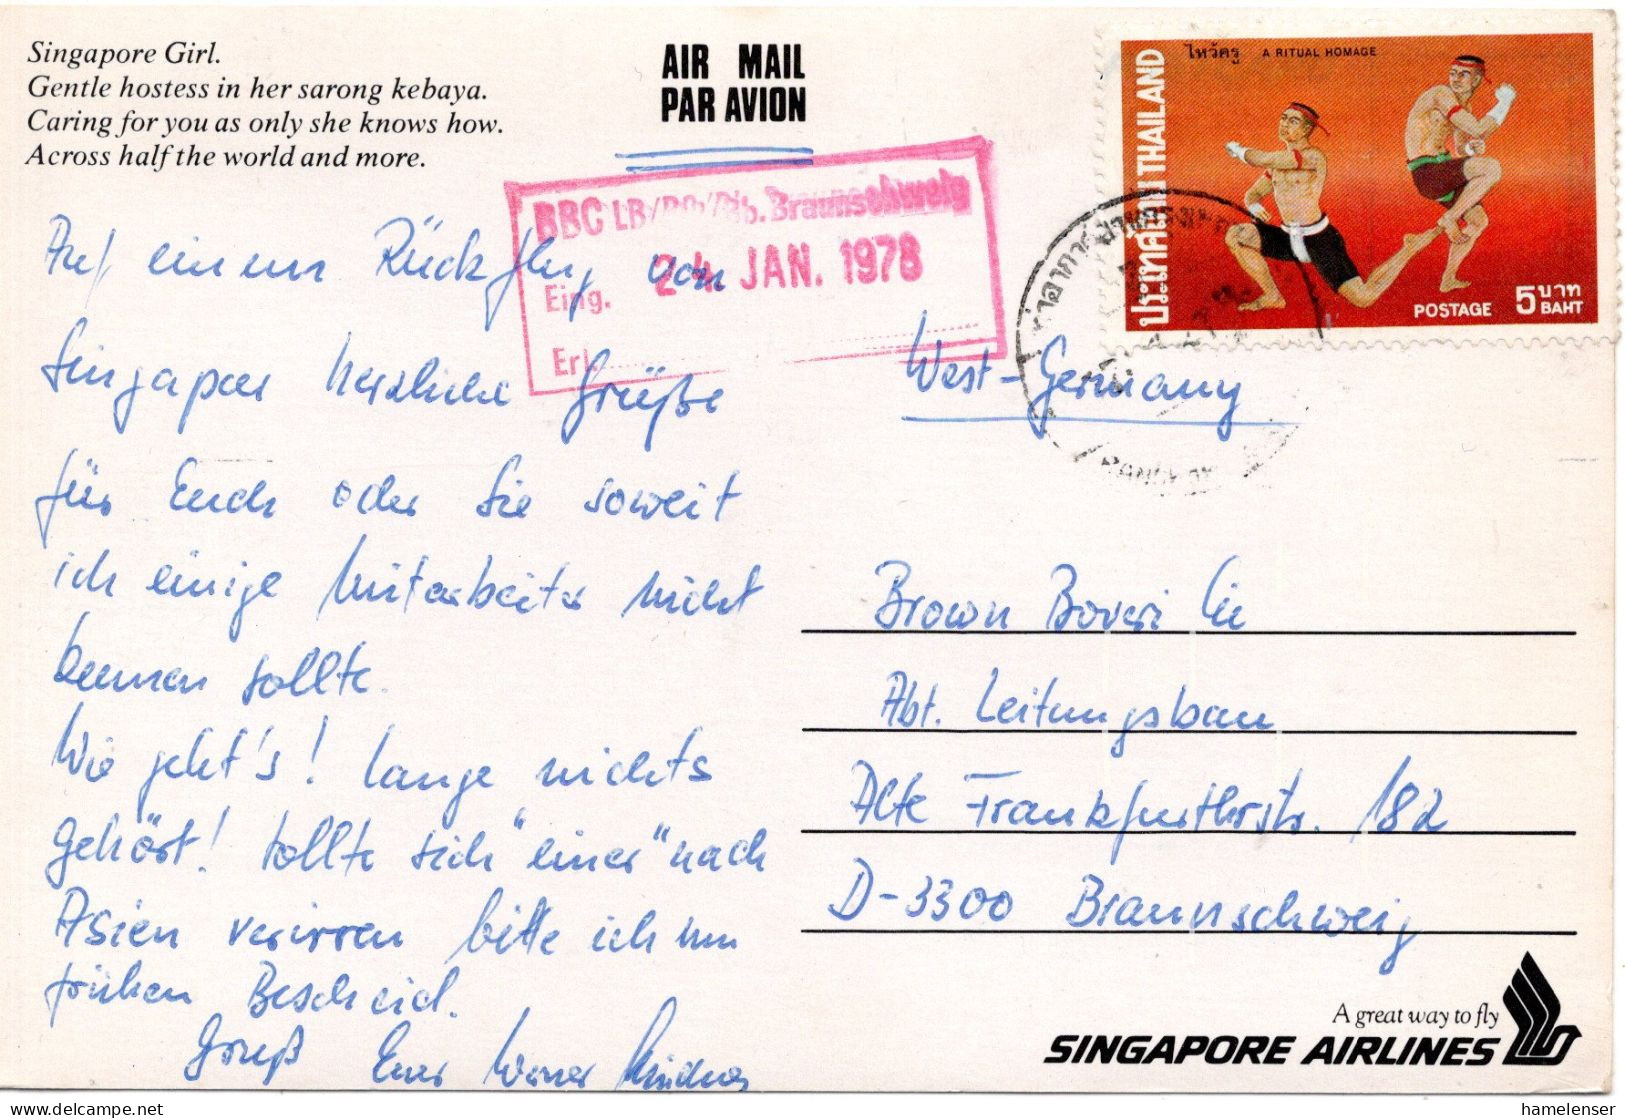 Singapore Girl.
Gentle hostess in her sarong kebaya.
Caring for you as only she knows how.
Across half the world and more.
AIR MAIL
PAR AVION
ไหว้ครู A RITUAL HOMAGE
ประเทศไทย THAILAND
POSTAGE 5 บาท BAHT
BBC LB/ Braunschweig
24. JAN. 1978
Eing.
Erl.
BANGKOK
Auf einem Rückflug von
Singapur herzliche Grüße
für Euch oder Sie soweit
ich einige Mitarbeiter nicht
kennen sollte.
Wie geht's! Lange nichts
gehört! Sollte sich "einer" nach
Asien verirren bitte ich um
frühen Bescheid.
Gruß Euer Werner
West-Germany
Brown Boveri Cie
Abt. Leitungsbau
Alte Frankfurthrstr. 182
D-3300 Braunschweig
A great way to fly
SINGAPORE AIRLINES
© Delcampe.net
hamelenser